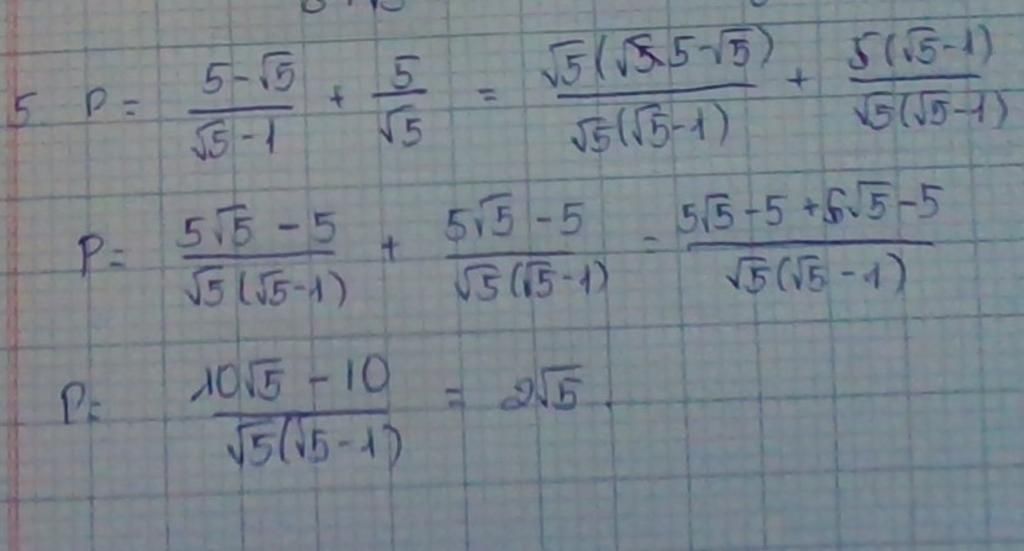 5 P = \frac{5-√5}{√5-1} + \frac{5}{√5} = \frac{√5(5-√5)}{√5(√5-1)} + \frac{5(√5-1)}{√5(√5-1)}
P = \frac{5√5-5}{√5(√5-1)} + \frac{5√5-5}{√5(√5-1)} = \frac{5√5-5+5√5-5}{√5(√5-1)}
P = \frac{10√5-10}{√5(√5-1)} = 2√5.